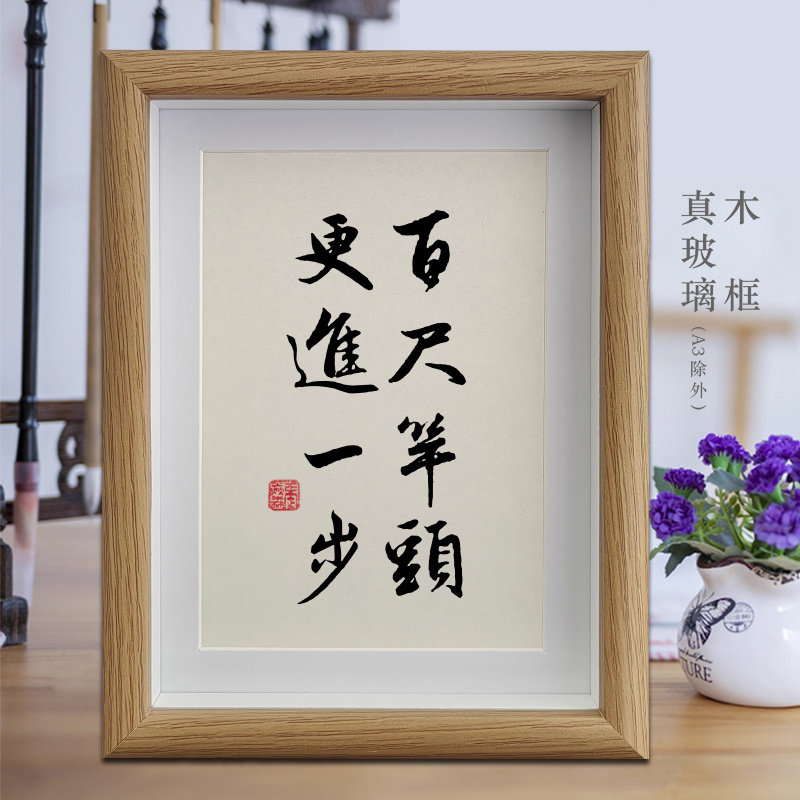 百尺竿頭
更進一步
木框
真玻璃(A3除外)
TURE